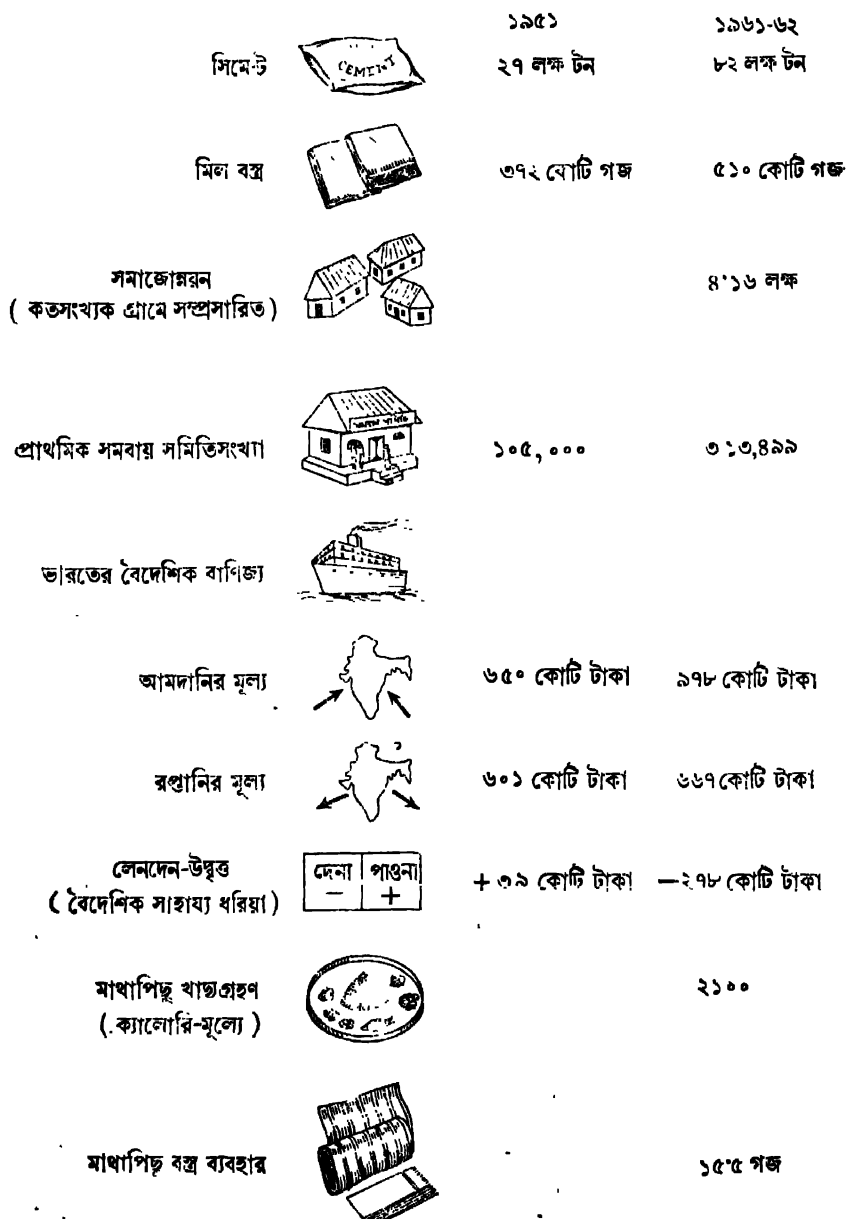 ১৯৫১ ১৯৬১-৬২
সিমেন্ট CEMENT ২৭ লক্ষ টন ৮২ লক্ষ টন
মিল বস্ত্র ৩৭২ কোটি গজ ৫১০ কোটি গজ
সমাজোন্নয়ন
( কতসংখ্যক গ্রামে সম্প্রসারিত ) ৪·১৬ লক্ষ
প্রাথমিক সমবায় সমিতিসংখ্যা ১০৫,০০০ ৩১৩,৪৯৯
ভারতের বৈদেশিক বাণিজ্য
আমদানির মূল্য ৬৫০ কোটি টাকা ৯৭৮ কোটি টাকা
রপ্তানির মূল্য ৬০১ কোটি টাকা ৬৬৭ কোটি টাকা
লেনদেন-উদ্বৃত্ত দেনা পাওনা
( বৈদেশিক সাহায্য ধরিয়া ) − + + ৩৯ কোটি টাকা —২৭৮ কোটি টাকা
মাথাপিছু খাদ্যগ্রহণ ২১০০
( ক্যালোরি-মূল্যে )
মাথাপিছু বস্ত্র ব্যবহার ১৫·৫ গজ